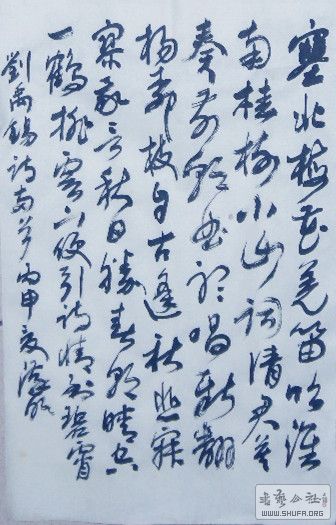 塞北梅花羌笛吹淮
南桂樹小山詞請君莫
奏前朝曲听唱新翻
楊柳枝自古逢秋悲寂
寥我言秋日勝春朝晴空
一鶴排雲上便引詩情到碧霄
劉禹錫詩兩首丙申夏
书艺公社
WWW.SHUFA.ORG